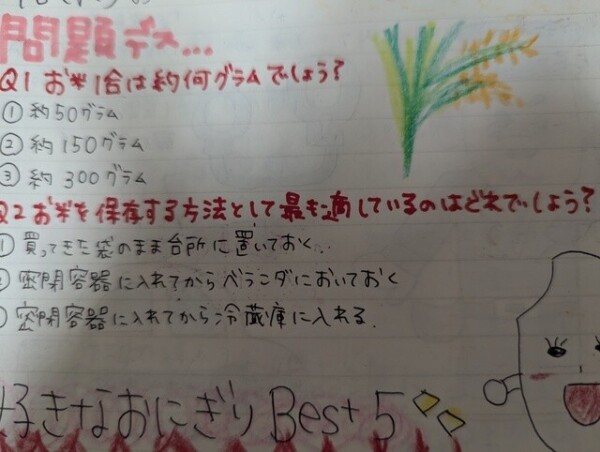 問題デス...
Q1 お米1合は約何グラムでしょう?
① 約50グラム
② 約150グラム
③ 約300グラム
Q2 お米を保存する方法として最も適しているのはどれでしょう?
① 買ってきた袋のまま台所に置いておく..
② 密閉容器に入れてからベランダにおいておく
③ 密閉容器に入れてから冷蔵庫に入れる.
好きなおにぎりBest 5